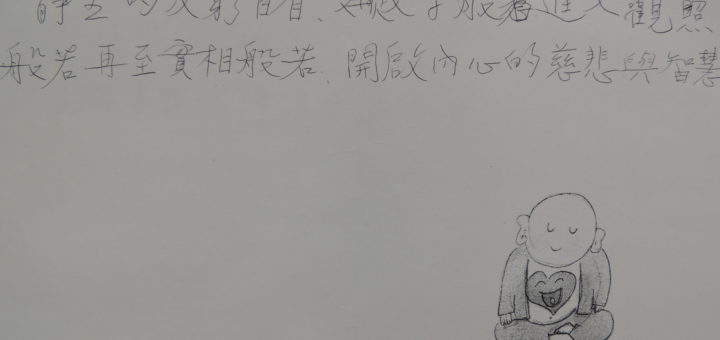 靜坐的反躬自省、文字般若進入觀照
般若再至實相般若、開啟內心的慈悲與智慧